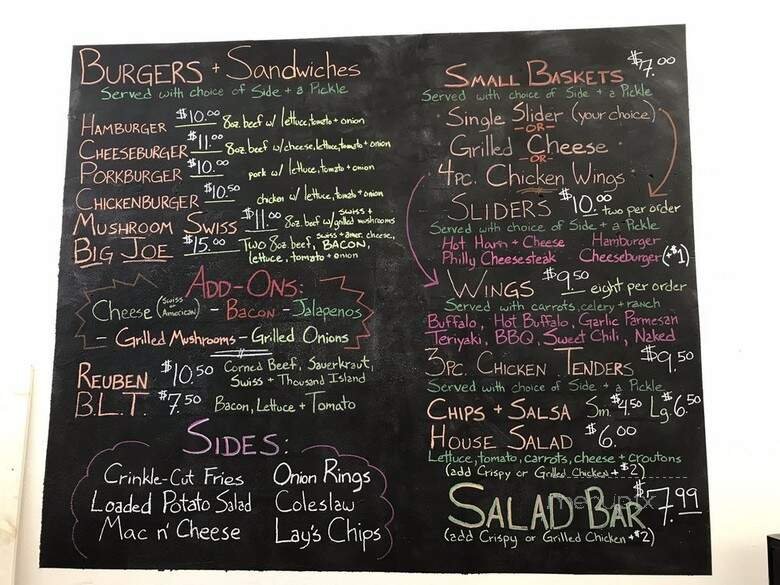 BURGERS + Sandwiches
Served with choice of Side + a Pickle
HAMBURGER $10.00 8oz. beef w/ lettuce, tomato + onion
CHEESEBURGER $11.00 8oz. beef w/cheese, lettuce, tomato + onion
PORKBURGER $10.00 pork w/ lettuce, tomato + onion
CHICKENBURGER $10.50 chicken w/ lettuce, tomato + onion
MUSHROOM SWISS $11.00 8oz. beef w/ swiss + grilled mushrooms
BIG JOE $15.00 Two 8oz beef, swiss + amer. cheese, BACON, lettuce, tomato + onion
ADD-ONS:
Cheese (Swiss or American) - BACON - Jalapenos
- Grilled Mushrooms - Grilled Onions
REUBEN $10.50 Corned Beef, Sauerkraut, Swiss + Thousand Island
B.L.T. $7.50 Bacon, Lettuce + Tomato
SIDES:
Crinkle-Cut Fries
Onion Rings
Loaded Potato Salad
Coleslaw
Mac n' Cheese
Lay's Chips
SMALL BASKETS $7.00
Served with choice of Side + a Pickle
Single Slider (your choice)
-OR-
Grilled Cheese
-OR-
4pc. Chicken Wings
SLIDERS $10.00 two per order
Served with choice of Side + a Pickle
Hot Ham + Cheese Hamburger
Philly Cheesesteak Cheeseburger (+$1)
WINGS $9.50 eight per order
Served with carrots, celery + ranch
Buffalo, Hot Buffalo, Garlic Parmesan
Teriyaki, BBQ, Sweet Chili, Naked
3pc. CHICKEN TENDERS $9.50
Served with choice of Side + a Pickle
CHIPS + SALSA Sm. $4.50 Lg. $6.50
HOUSE SALAD $6.00
Lettuce, tomato, carrots, cheese + croutons
(add Crispy or Grilled Chicken +$2)
SALAD BAR $7.99
(add Crispy or Grilled Chicken +$2)